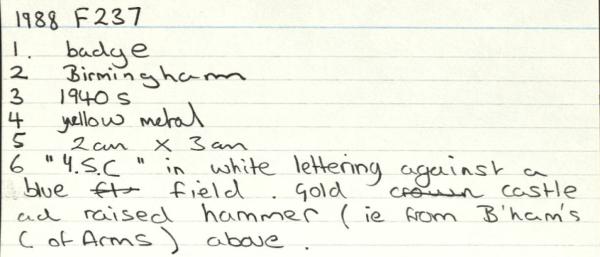 1988 F237
1. badge
2 Birmingham
3 1940s
4 yellow metal
5 2cm x 3cm
6 "Y.S.C" in white lettering against a
blue field. gold crown castle
ad raised hammer (ie from B'ham's
C of Arms) above.